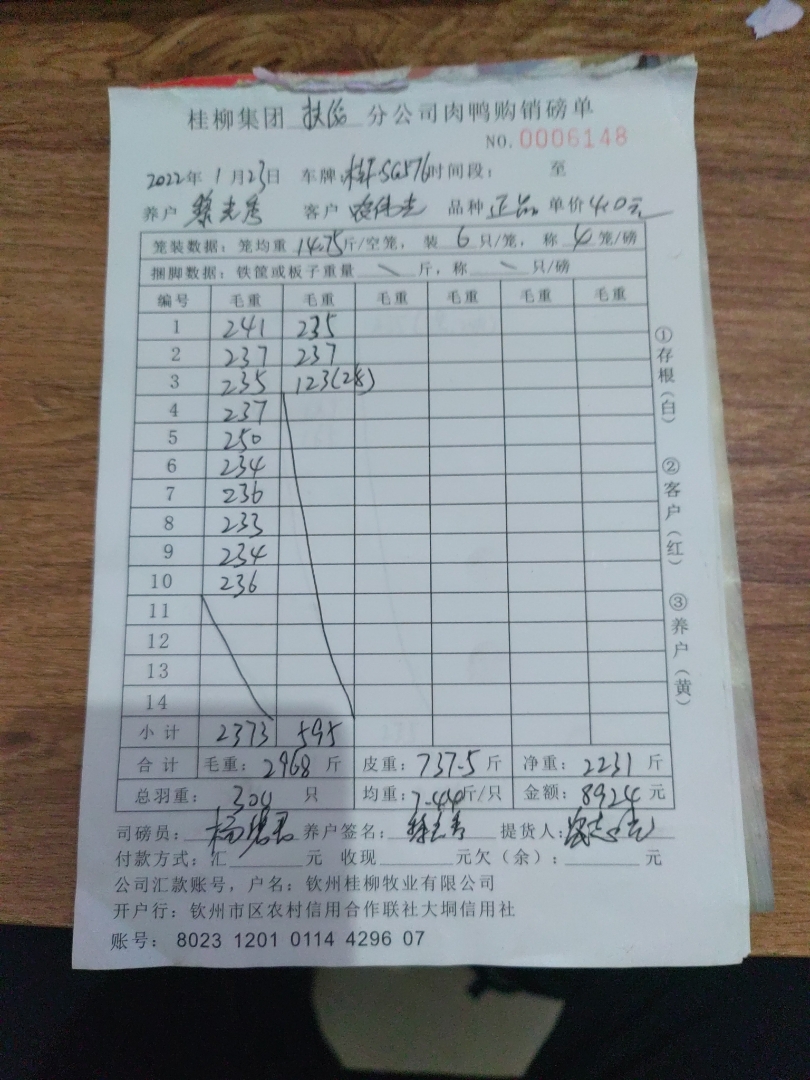 桂柳集团 扶绥 分公司肉鸭购销磅单
NO. 0006148
2022年 1月23日 车牌: 时间段： 至
养户 客户 品种 正品 单价 4.0元
笼装数据：笼均重 14.75斤/空笼，装 6 只/笼，称 4 笼/磅
捆脚数据：铁筐或板子重量 \ 斤，称 \ 只/磅
编号 毛重 毛重 毛重 毛重 毛重 毛重
1 241 235
2 237 237
3 235 123(28)
4 237
5 250
6 234
7 236
8 233
9 234
10 236
11
12
13
14
小计 2373 595
合计 毛重：2968 斤 皮重：737.5 斤 净重：2231 斤
总羽重：300 只 均重：7.44斤/只 金额：8924 元
司磅员： 养户签名： 提货人：
付款方式：汇 元 收现 元欠（余）： 元
公司汇款账号，户名：钦州桂柳牧业有限公司
开户行：钦州市区农村信用合作联社大垌信用社
账号： 8023 1201 0114 4296 07
①存根（白） ②客户（红） ③养户（黄）